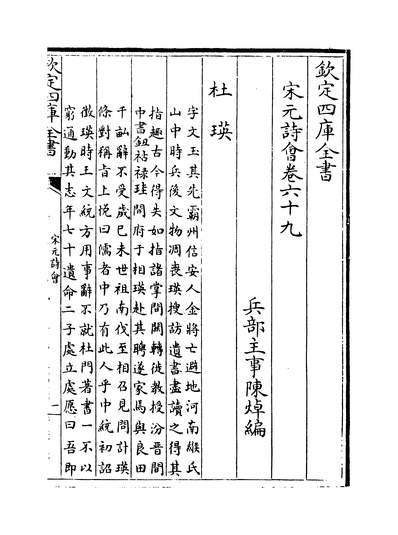 欽定四庫全書
宋元詩會卷六十九
兵部主事陳焯編
杜瑛
字文玉其先霸州信安人金將亡避地河南緱氏
山中時兵後文物凋喪瑛搜訪遺書盡讀之得其
指趣古今得失如指諸掌間關轉徙教授汾晉間
中書鈕祜祿珪開府于相瑛赴其聘遂家焉與良田
千畝辭不受歲己未世祖南伐至相召見問計瑛
條對稱旨上悅曰儒者中乃有此人乎中統初詔
徵瑛時王文統方用事辭不就杜門著書一不以
窮通動其志年七十遺命二子處立處愿曰吾即
欽定四庫全書
宋元詩會
一